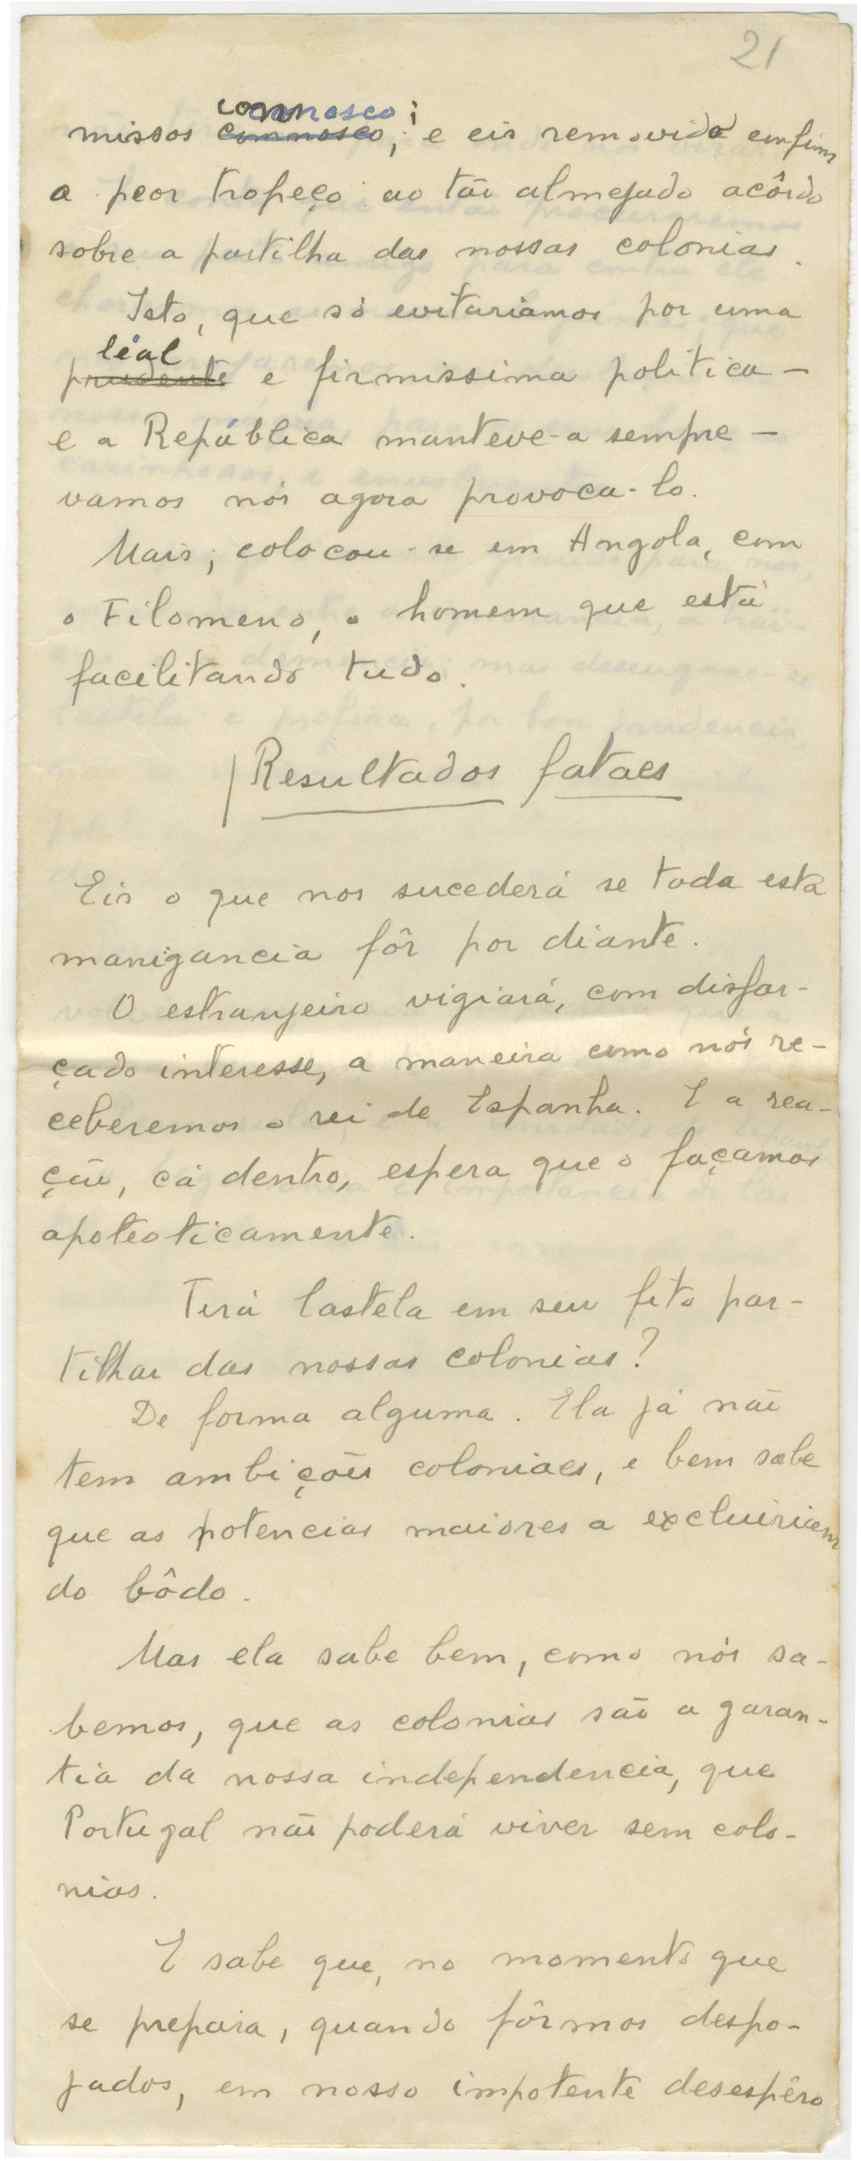 21
connosco;
missos comnosco, e eis removido emfim
o peor tropeço ao tão almejado acôrdo
sobre a partilha das nossas colonias.
Isto, que só evitariamos por uma
lial
prudente e firmissima politica —
e a República manteve-a sempre —
vamos nós agora provoca-lo.
Mais; colocou-se em Angola, com
o Filomeno, o homem que está
facilitando tudo.
Resultados fataes
Eis o que nos sucederá se toda esta
manigancia fôr por diante.
O estranjeiro vigiará, com disfar-
çado interesse, a maneira como nós re-
ceberemos o rei de Espanha. E a rea-
ção, cá dentro, espera que o façamos
apoteoticamente.
Terá Castela em seu fito par-
tilhar das nossas colonias?
De forma alguma. Ela já não
tem ambições coloniaes, e bem sabe
que as potencias maiores a excluiriam
do bôdo.
Mas ela sabe bem, como nós sa-
bemos, que as colonias são a garan-
tia da nossa independencia, que
Portugal não poderá viver sem colo-
nias.
E sabe que, no momento que
se prepara, quando fôrmos despo-
jados, em nosso impotente desespêro